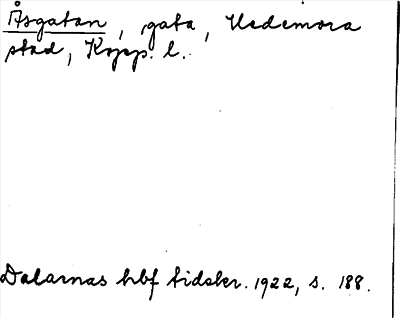 Åsgatan, gata, Hedemora
stad, Kopp. l.
Dalarnas hbf tidskr. 1922, s. 188.